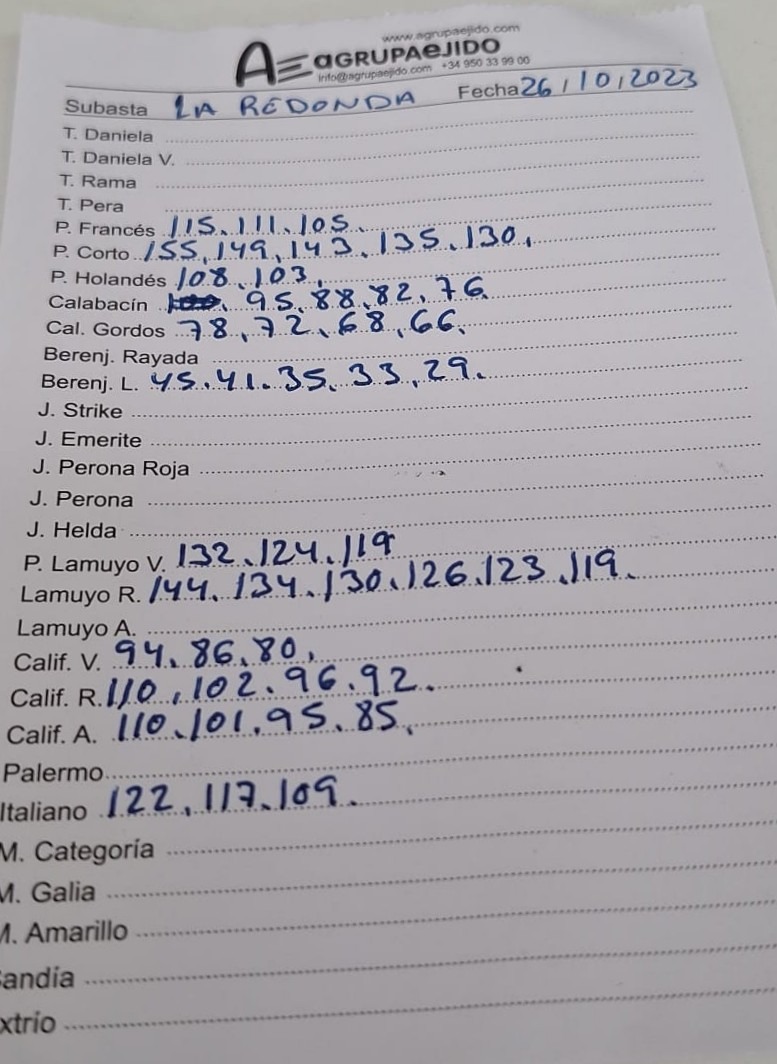 www.agrupaejido.com
AE AGRUPAEJIDO
info@agrupaejido.com +34 950 33 99 00
Subasta LA REDONDA Fecha 26/10/2023
T. Daniela
T. Daniela V.
T. Rama
T. Pera
P. Francés 115. 111. 105.
P. Corto 155, 149, 143. 135. 130,
P. Holandés 108. 103,
Calabacín 95. 88. 82, 76.
Cal. Gordos 78, 72, 68, 66.
Berenj. Rayada
Berenj. L. 45. 41. 35. 33, 29.
J. Strike
J. Emerite
J. Perona Roja
J. Perona
J. Helda
P. Lamuyo V. 132. 124. 119
Lamuyo R. 144. 134. 130. 126. 123. 119.
Lamuyo A.
Calif. V. 94. 86. 80,
Calif. R. 110, 102. 96. 92.
Calif. A. 110. 101. 95. 85.
Palermo
Italiano 122, 117. 109.
M. Categoría
M. Galia
M. Amarillo
andía
xtrio